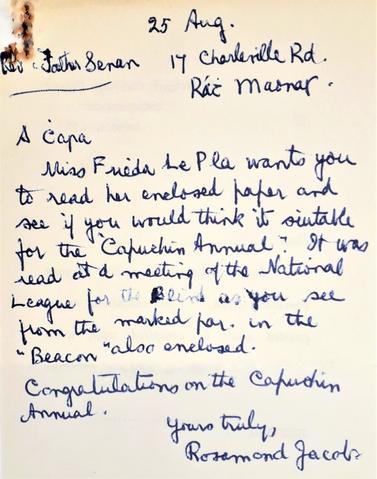 25 Aug.
Rev. Father Senan
17 Charleville Rd.
Ráċ Maonaṗ.
A Ċapa
Miss Frieda Le Pla wants you
to read her enclosed paper and
see if you would think it suitable
for the "Capuchin Annual". It was
read at a meeting of the National
League for the Blind as you see
from the marked par. in the
"Beacon" also enclosed.
Congratulations on the Capuchin
Annual.
Yours truly,
Rosamond Jacob.